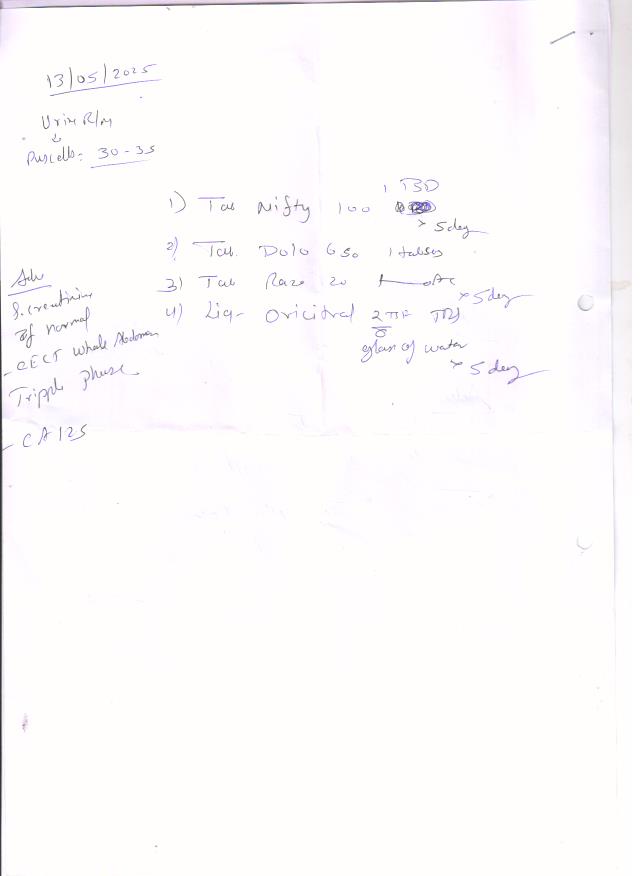 13/05/2025
Urine R/m
↓
Puscells: 30-35
1) Tab Nifty 100 1 BD
× 5 day
2) Tab. Dolo 650 1 tab SOS
3) Tab Raze 20 1 AC
× 5 day
4) Liq- Oricitral 2 TSF TDS
glass of water
× 5 day
Adv
S. Creatinine
If normal
- CECT Whole Abdomen
Tripple phase
- CA 125